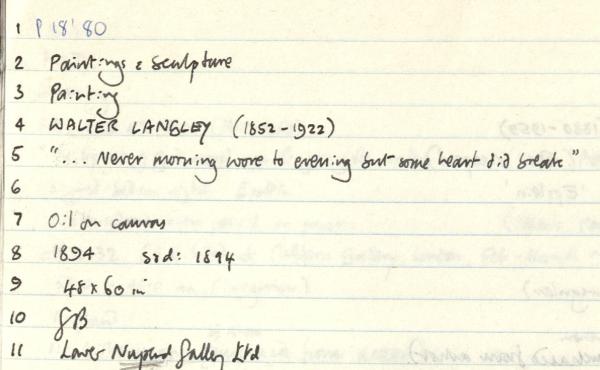 1 P 18'80
2 Paintings & Sculpture
3 Painting
4 WALTER LANGLEY (1852-1922)
5 "... Never morning wore to evening but some heart did break"
6
7 Oil on canvas
8 1894 s&d: 1894
9 48 x 60 in
10 GB
11 Lower Nupend Gallery Ltd